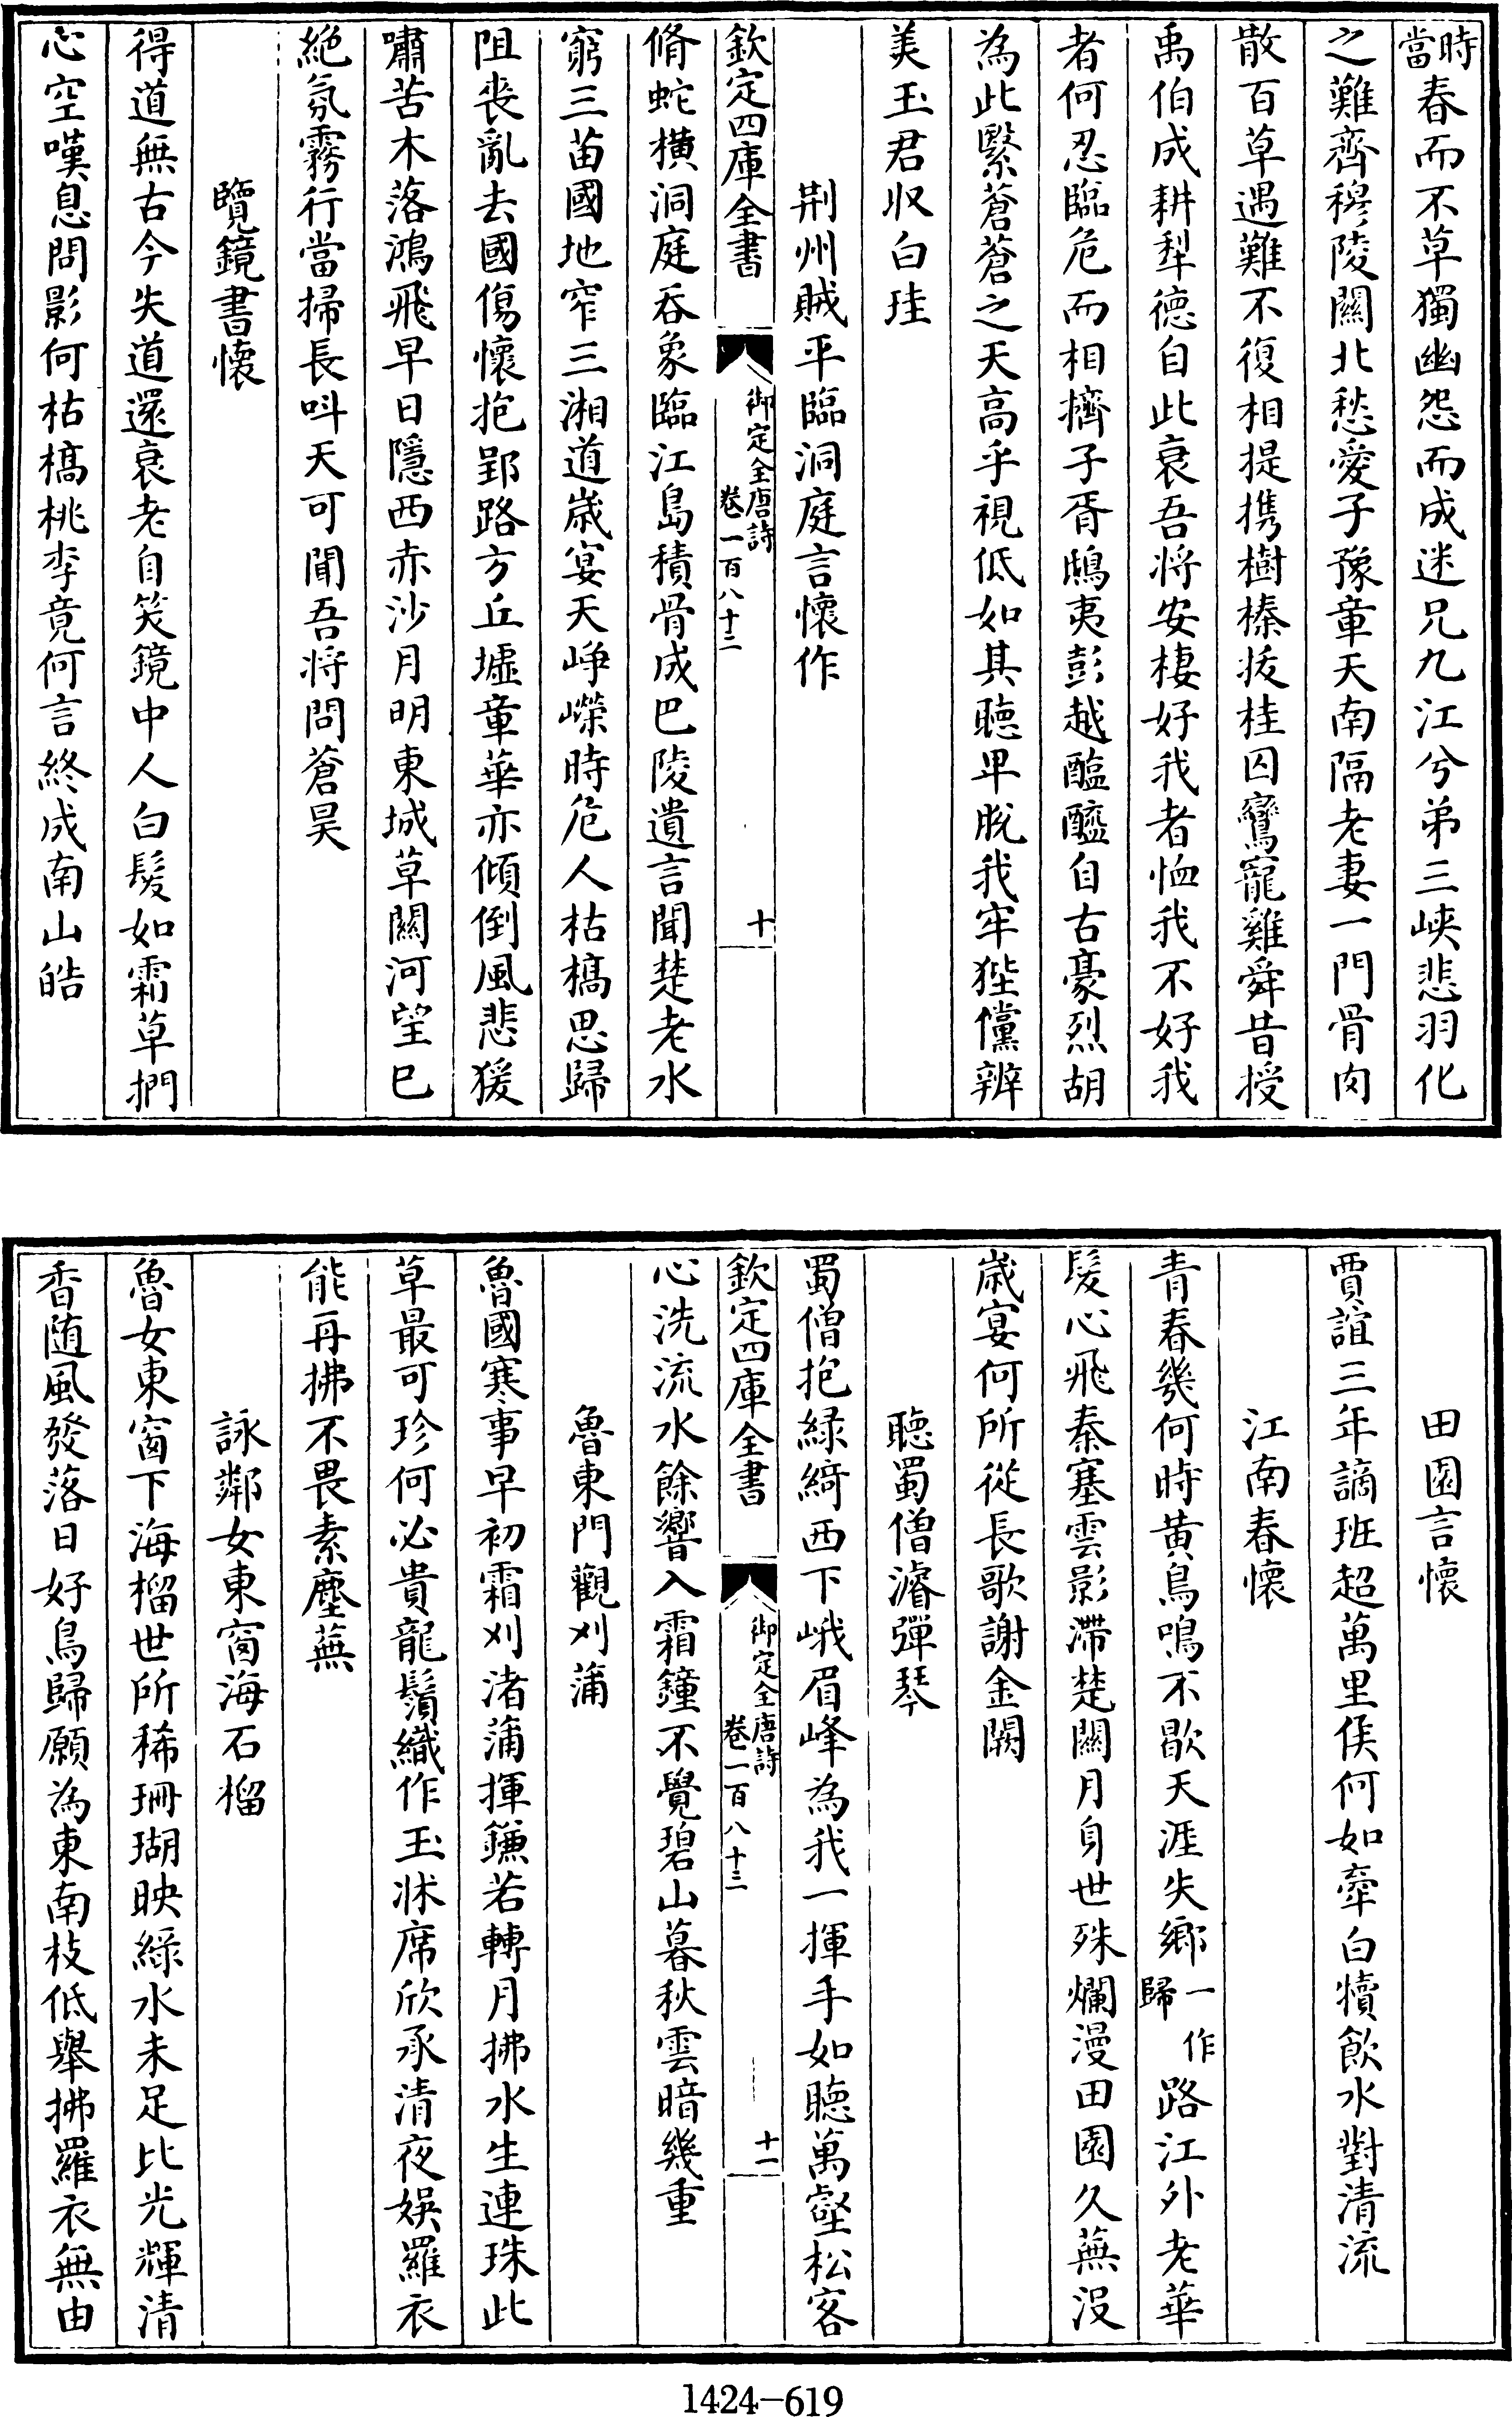 時當春而不草獨幽怨而成迷兄九江兮弟三峽悲羽化
之難齊穆陵關北愁愛子豫章天南隔老妻一門骨肉
散百草遇難不復相提携樹榛拔桂囚鸞寵雞舜昔授
禹伯成耕犁德自此衰吾將安棲好我者恤我不好我
者何忍臨危而相擠子胥鴟夷彭越醢醯自古豪烈胡
為此繄蒼蒼之天高乎視低如其聽卑脫我牢狴儻辨
美玉君収白珪
荆州賊平臨洞庭言懷作
欽定四庫全書
御定全唐詩
卷一百八十三
十
脩蛇橫洞庭吞象臨江島積骨成巴陵遺言聞楚老水
窮三苗國地窄三湘道歲宴天崢嶸時危人枯槁思歸
阻喪亂去國傷懷抱郢路方丘墟章華亦傾倒風悲猨
嘯苦木落鴻飛早日隱西赤沙月明東城草關河望已
絶氛霧行當掃長呌天可聞吾將問蒼昊
覽鏡書懷
得道無古今失道還衰老自笑鏡中人白髮如霜草捫
心空嘆息問影何枯槁桃李竟何言終成南山皓
田園言懷
賈誼三年謫班超萬里侯何如牽白犢飲水對清流
江南春懷
青春幾何時黄鳥鳴不歇天涯失鄉一作歸路江外老華
髮心飛秦塞雲影滯楚關月身世殊爛漫田園久蕪没
歲宴何所從長歌謝金闕
聽蜀僧濬彈琴
蜀僧抱緑綺西下峨眉峰為我一揮手如聽萬壑松客
欽定四庫全書
御定全唐詩
卷一百八十三
十一
心洗流水餘響入霜鐘不覺碧山暮秋雲暗幾重
魯東門觀刈蒲
魯國寒事早初霜刈渚蒲揮鎌若轉月拂水生連珠此
草最可珍何必貴龍鬚織作玉牀席欣承清夜娱羅衣
能再拂不畏素塵蕪
詠鄰女東窗海石榴
魯女東窗下海榴世所稀珊瑚映緑水未足比光輝清
香随風發落日好鳥歸願為東南枝低舉拂羅衣無由
1424-619